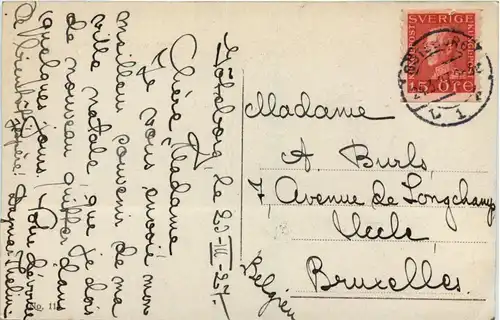 Göteborg, le 29-III-27.
Chère Madame
Je vous envoie mon
meilleur souvenir de ma
ville natale que je dois
de nouveau quitter dans
quelques jours. Votre dévouée
Dagmar
à bientôt
SVERIGE
POST
15 ÖRE
GÖTEBORG
L 1
Madame
A. Burls,
7, Avenue de Longchamp
Uccle
Bruxelles.
Belgien
No. 11